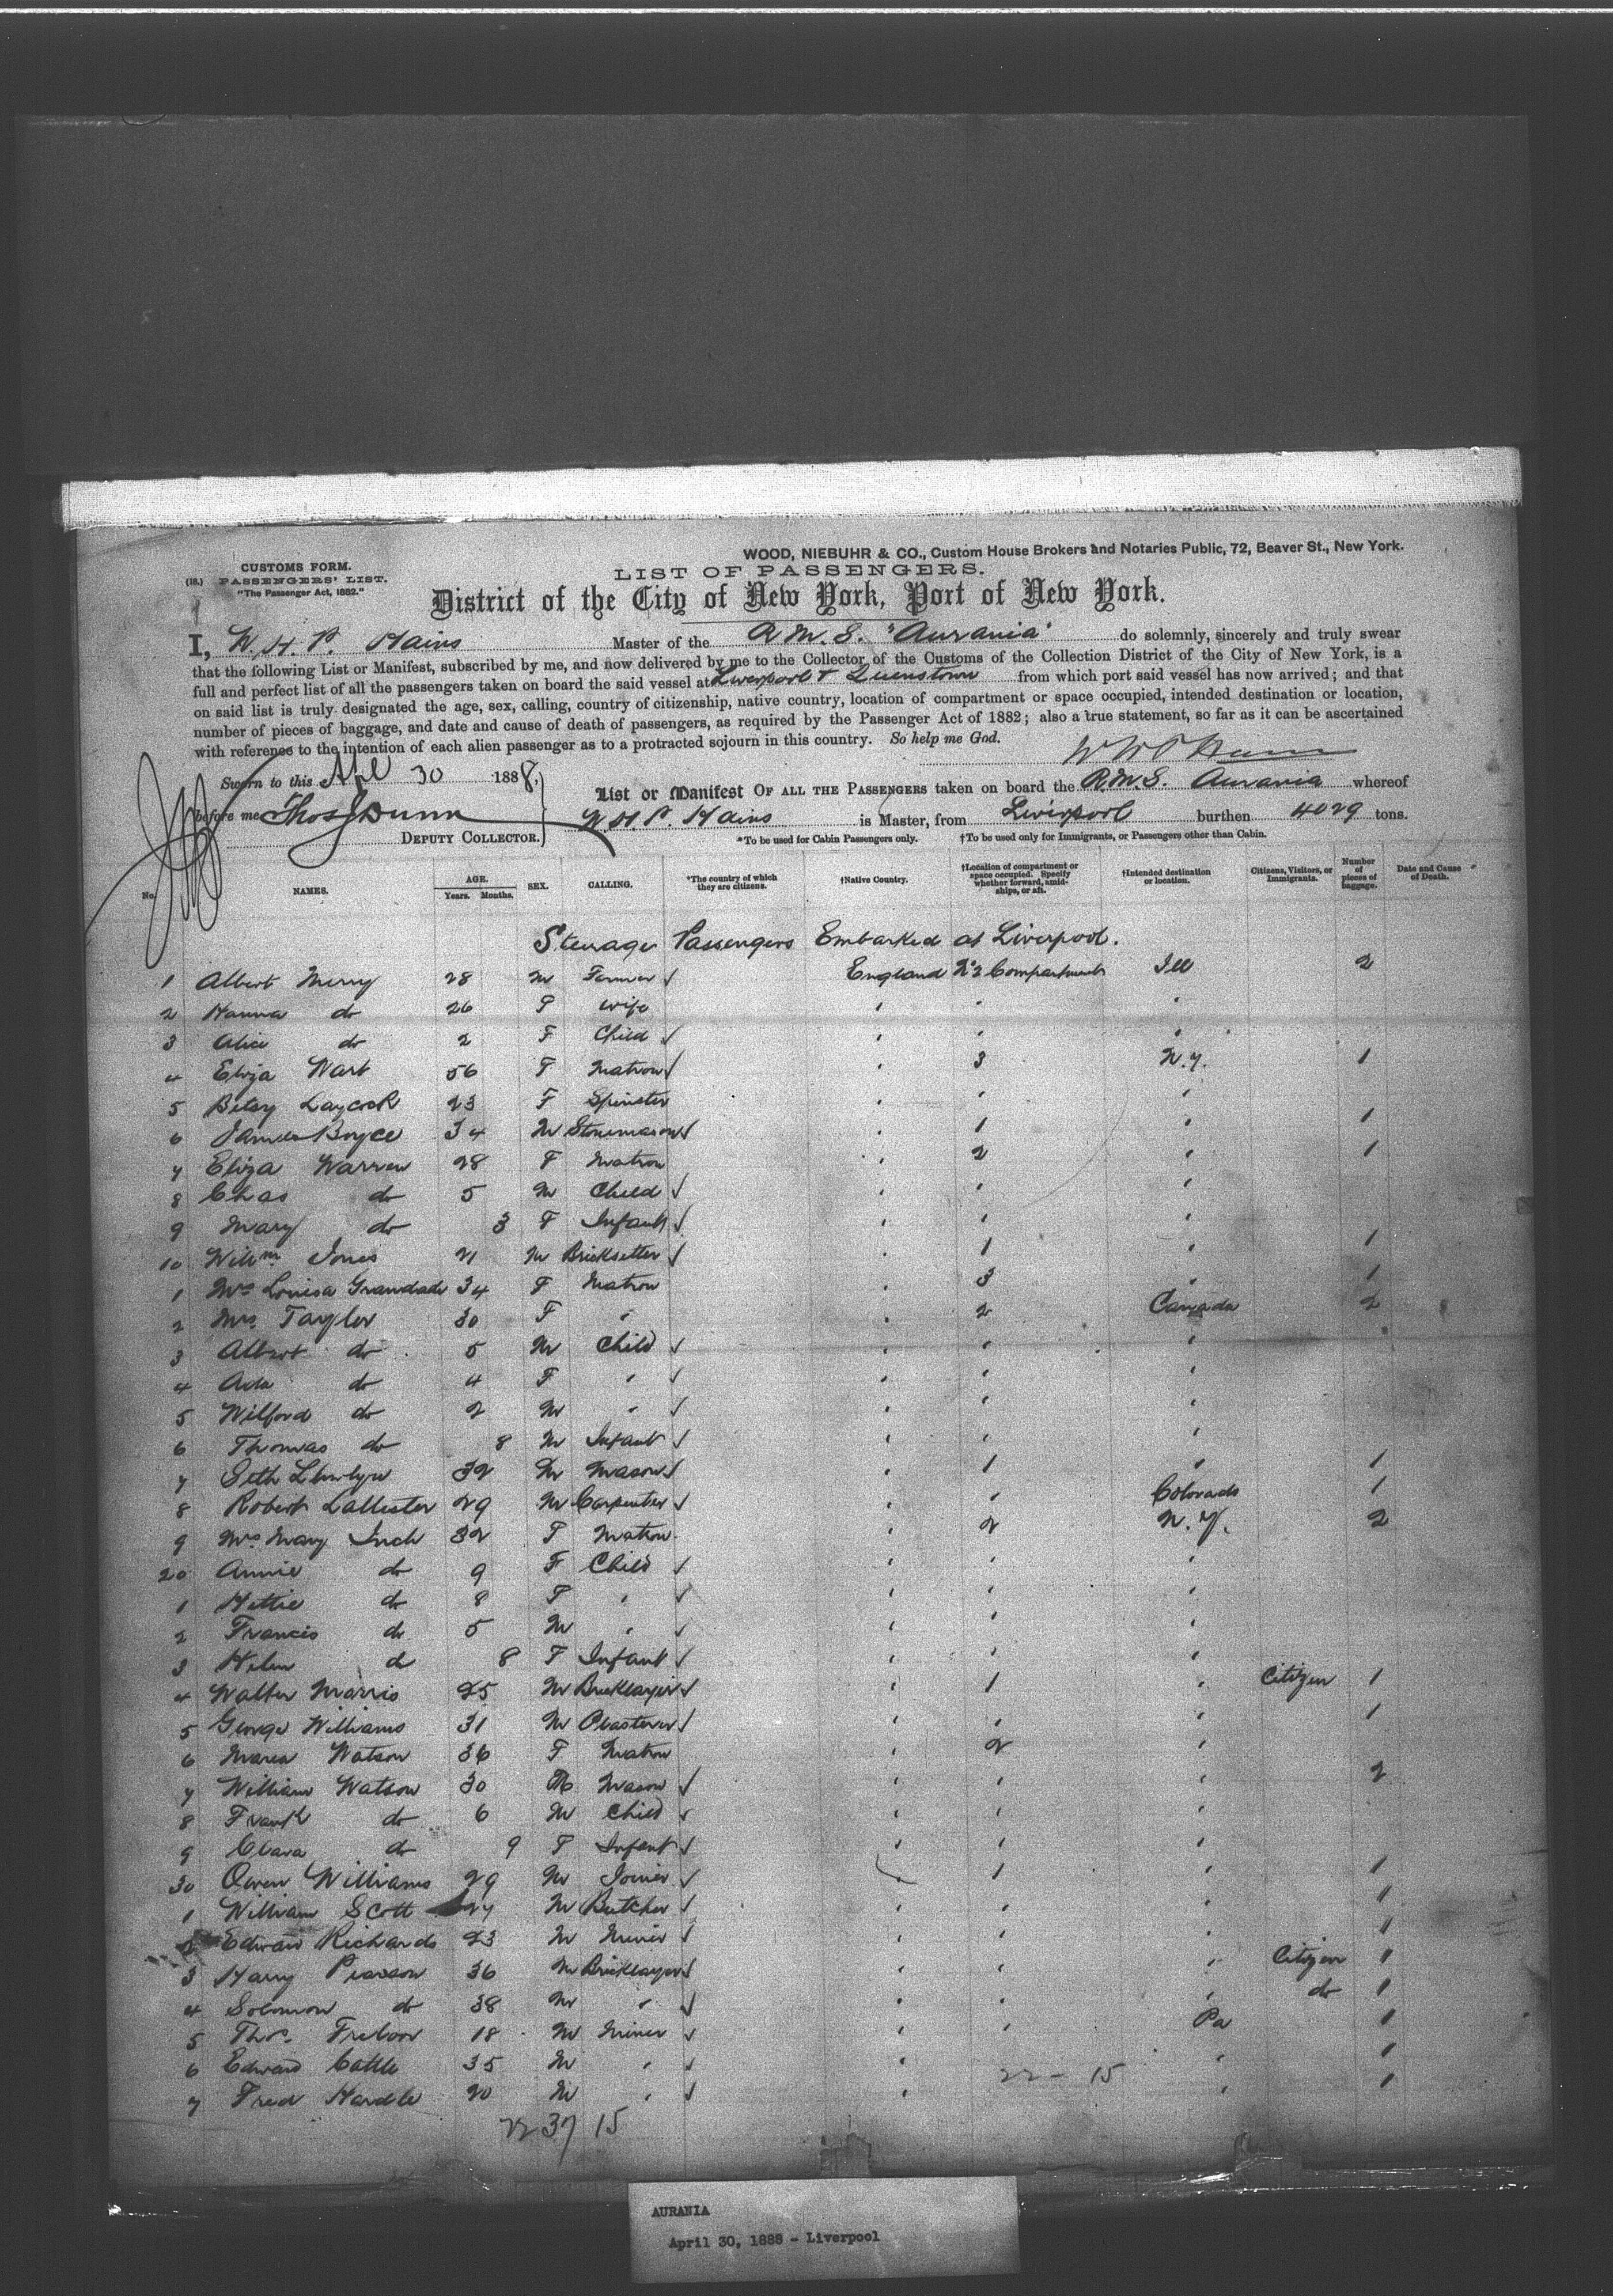 WOOD, NIEBUHR & CO., Custom House Brokers and Notaries Public, 72, Beaver St., New York.
CUSTOMS FORM.
(18.) PASSENGERS' LIST.
"The Passenger Act, 1882."
LIST OF PASSENGERS.
District of the City of New York, Port of New York.
I, W. H. P. Hains Master of the R.M.S. "Aurania" do solemnly, sincerely and truly swear
that the following List or Manifest, subscribed by me, and now delivered by me to the Collector of the Customs of the Collection District of the City of New York, is a
full and perfect list of all the passengers taken on board the said vessel at Liverpool & Queenstown from which port said vessel has now arrived; and that
on said list is truly designated the age, sex, calling, country of citizenship, native country, location of compartment or space occupied, intended destination or location,
number of pieces of baggage, and date and cause of death of passengers, as required by the Passenger Act of 1882; also a true statement, so far as it can be ascertained
with reference to the intention of each alien passenger as to a protracted sojourn in this country. So help me God.
Sworn to this Apl 30 1888,
before me Thos J Dunn
DEPUTY COLLECTOR.
List or Manifest OF ALL THE PASSENGERS taken on board the R.M.S. Aurania whereof
W H. P. Hains is Master, from Liverpool burthen 4029 tons.
*To be used for Cabin Passengers only. †To be used only for Immigrants, or Passengers other than Cabin.
No. NAMES. AGE. Years. Months. SEX. CALLING. *The country of which they are citizens. †Native Country. †Location of compartment or space occupied. Specify whether forward, amidships, or aft. †Intended destination or location. Citizens, Visitors, or Immigrants. Number of pieces of baggage. Date and Cause of Death.
Steerage Passengers Embarked at Liverpool.
1 Albert Merry 28 M Farmer England No 2 Compartment Ill 2
2 Hanna do 26 F Wife " " "
3 Alice do 2 F Child " " "
4 Eliza Wart 56 F Matron " 3 N.Y. 1
5 Betsy Laycock 23 F Spinster " "
6 James Boyce 34 M Stonemason " 1 " 1
7 Eliza Warren 28 F Matron " 2 " 1
8 Chas do 5 M Child " " "
9 Mary do 3 F Infant " " "
10 Willm Jones 21 M Bricksetter " 1 " 1
1 Mrs Louisa 34 F Matron " 3 " 1
2 Mrs. Taylor 30 F " " 2 Canada 2
3 Albert do 5 M Child " " "
4 Ada do 4 F " " " "
5 Wilford do 2 M " " "
6 Thomas do 8 M Infant " " "
7 Seth Llewlyn 32 M Mason " 1 " 1
8 Robert Lallister 29 M Carpenter " " Colorado 1
9 Mrs. Mary Inch 32 F Matron " 2 N.Y. 2
20 Annie do 9 F Child " " "
1 Hettie do 8 F " " " "
2 Francis do 5 M " " "
3 Helen do 8 F Infant " " "
4 Walter Morris 25 M Bricklayer " 1 " Citizen 1
5 George Williams 31 M Plasterer " " " 1
6 Maria Watson 36 F Matron " 2 "
7 William Watson 30 M Mason " " " 2
8 Frank do 6 M Child " " "
9 Clara do 9 F Infant " " "
30 Owen Williams 29 M Joiner 1 " 1
1 William Scott 27 M Butcher " " " 1
2 Edward Richards 23 M Miner " " " 1
3 Harry Pearson 36 M Bricklayer " " " Citizen 1
4 Solomon do 38 M " " " do 1
5 Thos. 18 M Miner " " Pa 1
6 Edward Cattle 35 M " " " 1
7 Fred Hardle 20 M " " " 1
22 - 15
22 37 15
AURANIA
April 30, 1888 - Liverpool